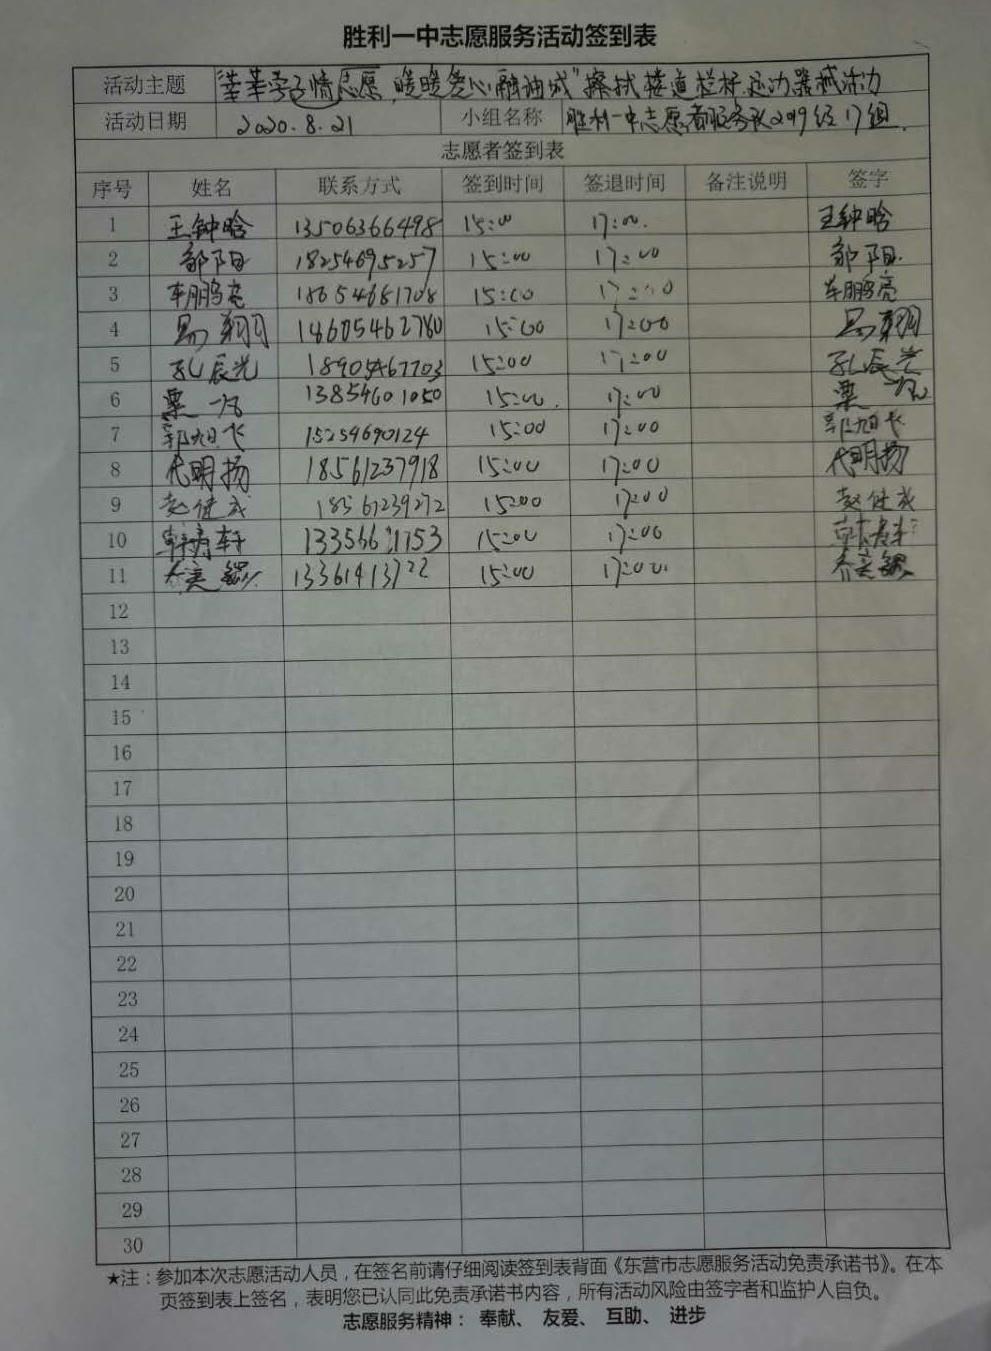 胜利一中志愿服务活动签到表
活动主题 "莘莘学子情志愿,暖暖爱心融油城"擦拭楼道栏杆,还动器械活力
活动日期 2020.8.21 小组名称 胜利一中志愿者服务队2019级17组.
志愿者签到表
序号 姓名 联系方式 签到时间 签退时间 备注说明 签字
1 王钟晗 13506366498 15:00 17:00. 王钟晗
2 郭阳 18254695257 15:00 17:00 郭阳.
3 车鹏亮 18654681708 15:00 17:00 车鹏亮
4 易翔 18605462780 15:00 17:00 易翔
5 孔辰光 18905467703 15:00 17:00 孔辰光
6 粟一 13854601050 15:00. 17:00 粟一
7 郭旭飞 15254690124 15:00 17:00 郭旭飞
8 代明扬 18561237918 15:00 17:00 代明扬
9 赵健成 18561239272 15:00 17:00 赵健成
10 韩轩 15:00 17:00
11 13361413722 15:00 17:00.
12
13
14
15
16
17
18
19
20
21
22
23
24
25
26
27
28
29
30
★注:参加本次志愿活动人员,在签名前请仔细阅读签到表背面《东营市志愿服务活动免责承诺书》。在本
页签到表上签名,表明您已认同此免责承诺书内容,所有活动风险由签字者和监护人自负。
志愿服务精神: 奉献、 友爱、 互助、 进步